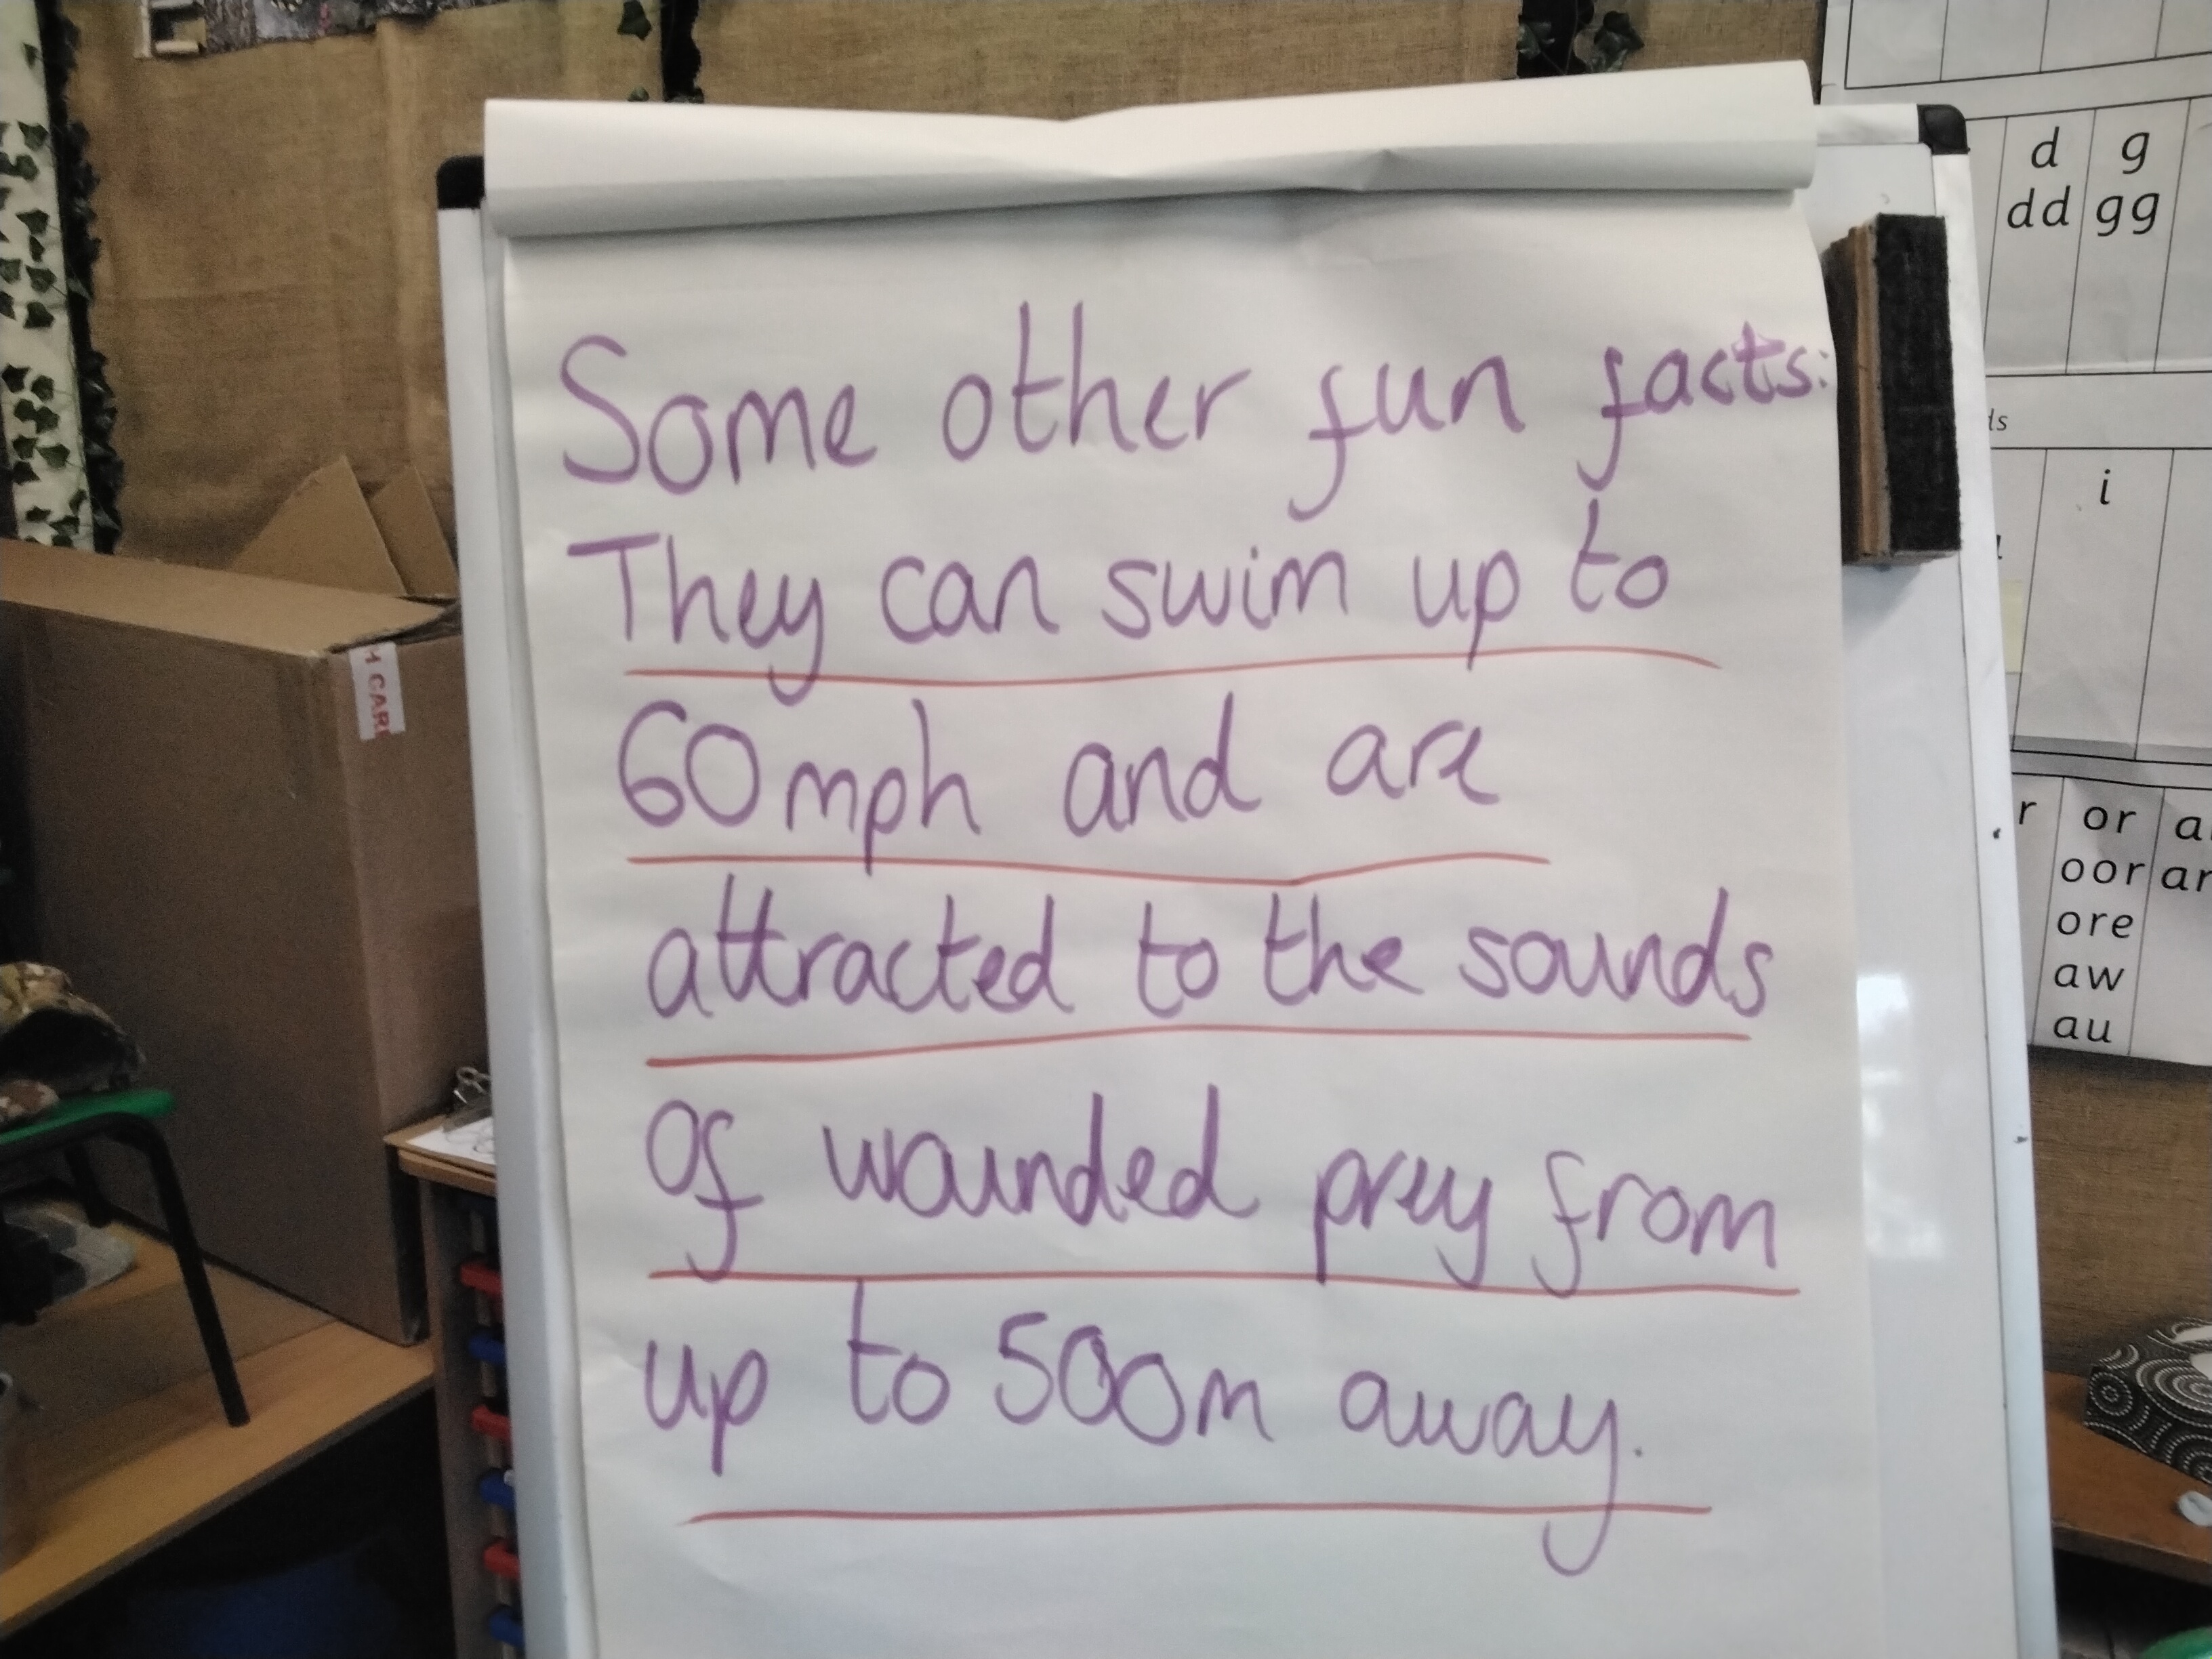 Some other fun facts:
They can swim up to
60mph and are
attracted to the sounds
of wounded prey from
up to 500m away.
d g
dd gg
i
r or
oor
ore
aw
au